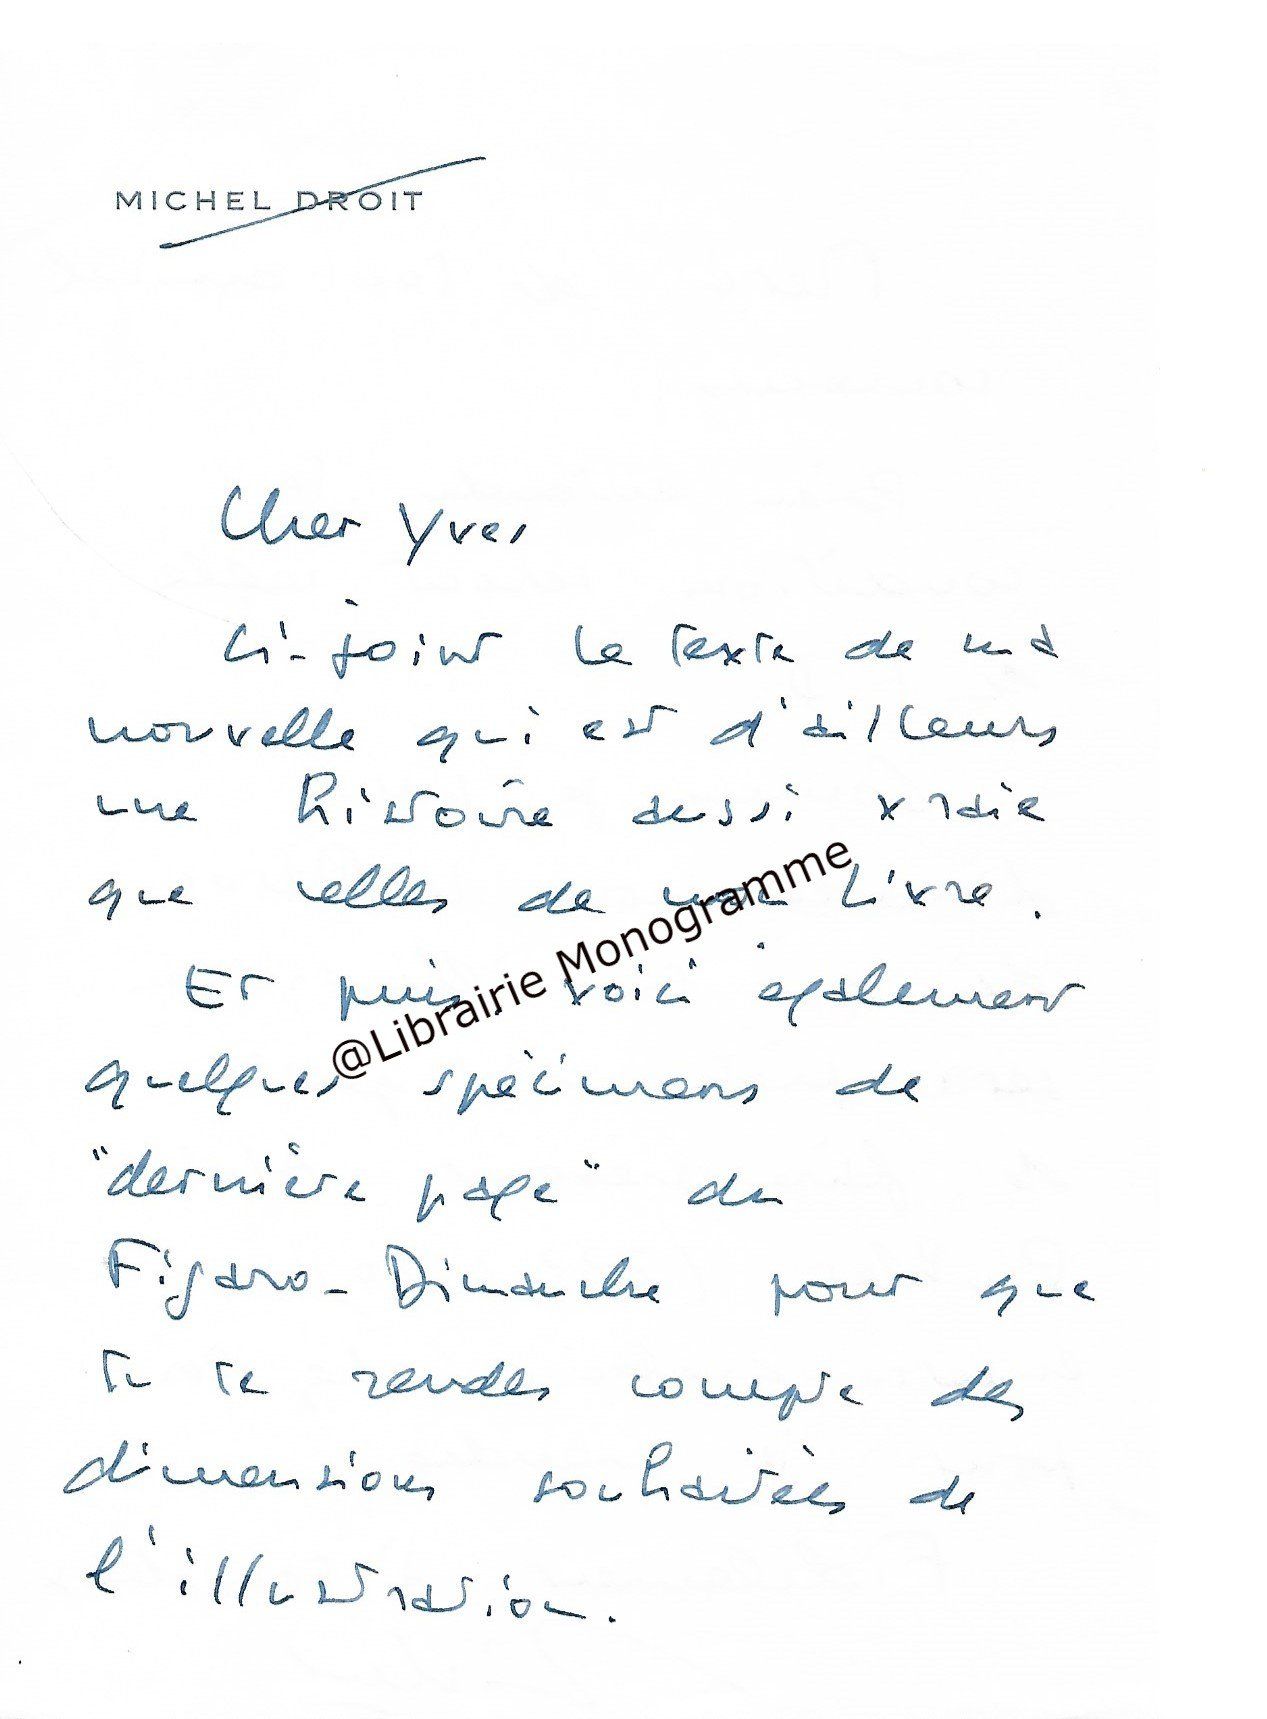 MICHEL DROIT
Cher Yves
Ci-joint le texte de ma
nouvelle qui est d'ailleurs
une histoire aussi vraie
que celles de mon livre.
Et puis, voici également
quelques spécimens de
"dernière page" du
Figaro-Dimanche pour que
tu te rendes compte des
dimensions souhaitées de
l'illustration.
@Librairie Monogramme